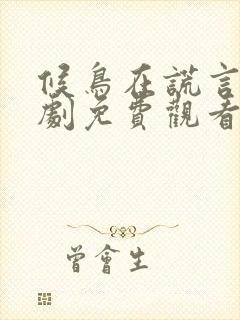 候鳥在謊言
劇免費觀看
曾會生